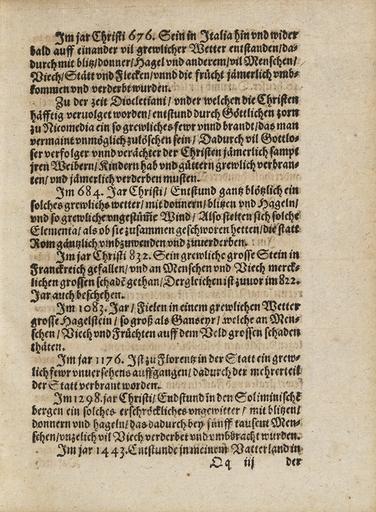 Im jar Christi 676. Sein in Italia hin vnd wider
bald auff einander vil grewlicher Wetter entstanden/da-
durch mit blitz/donner/Hagel vnd anderem/vil Menschen/
Viech/Stätt vnd Flecken/vnnd die frücht jämerlich vmb-
kommen vnd verderbt wurden.
Zu der zeit Diocletiani/vnder welchen die Christen
häfftig veruolget worden/entstund durch Göttlichen zorn
zu Nicomedia ein so grewliches fewr vnnd brandt/das man
vermaint vnmöglich zulöschen sein/Dadurch vil Gottlo-
ser verfolger vnnd verächter der Christen jämerlich sampt
jren Weibern/Kindern hab vnd güttern grewlich verbran-
ten/vnd jämerlich verderben musten.
Im 684. Jar Christi/Entstund gantz blötzlich ein
solches grewlichs wetter/mit donnern/blitzen vnd Hageln/
vnd so grewliche vngestüme Wind/Also stelten sich solche
Elementa/als ob sie zusammen geschworen hetten/die statt
Rom gäntzlich vmbzuwenden vnd zuuerderben.
Im jar Christi 832. Sein grewliche grosse Stein in
Franckreich gefallen/vnd an Menschen vnd Viech merck-
lichen grossen schadē gethan/Dergleichen ist zuuor im 822.
Jar auch beschehen.
Im 1083. Jar/Fielen in einem grewlichen Wetter
grosse Hagelstein/so groß als Ganseyr/welche an Men-
schen/Viech vnd Früchten auff dem Veld grossen schaden
thäten.
Im jar 1176. Ist zu Florentz in der Statt ein grew-
lich fewr vnuersehens auffgangen/dadurch der mehrerteil
der Statt verbrant worden.
Im 1298. jar Christi/Endstund in den Soliminischē
bergen ein solches erschröckliches vngewitter/mit blitzen/
donnern vnd hageln/das dadurch bey fünff tausent Men-
schen/vnzelich vil Viech verderbet vnd vmbbracht wurden.
Im jar 1443. Entstunde in meinem Vatterland in
Qq iij der